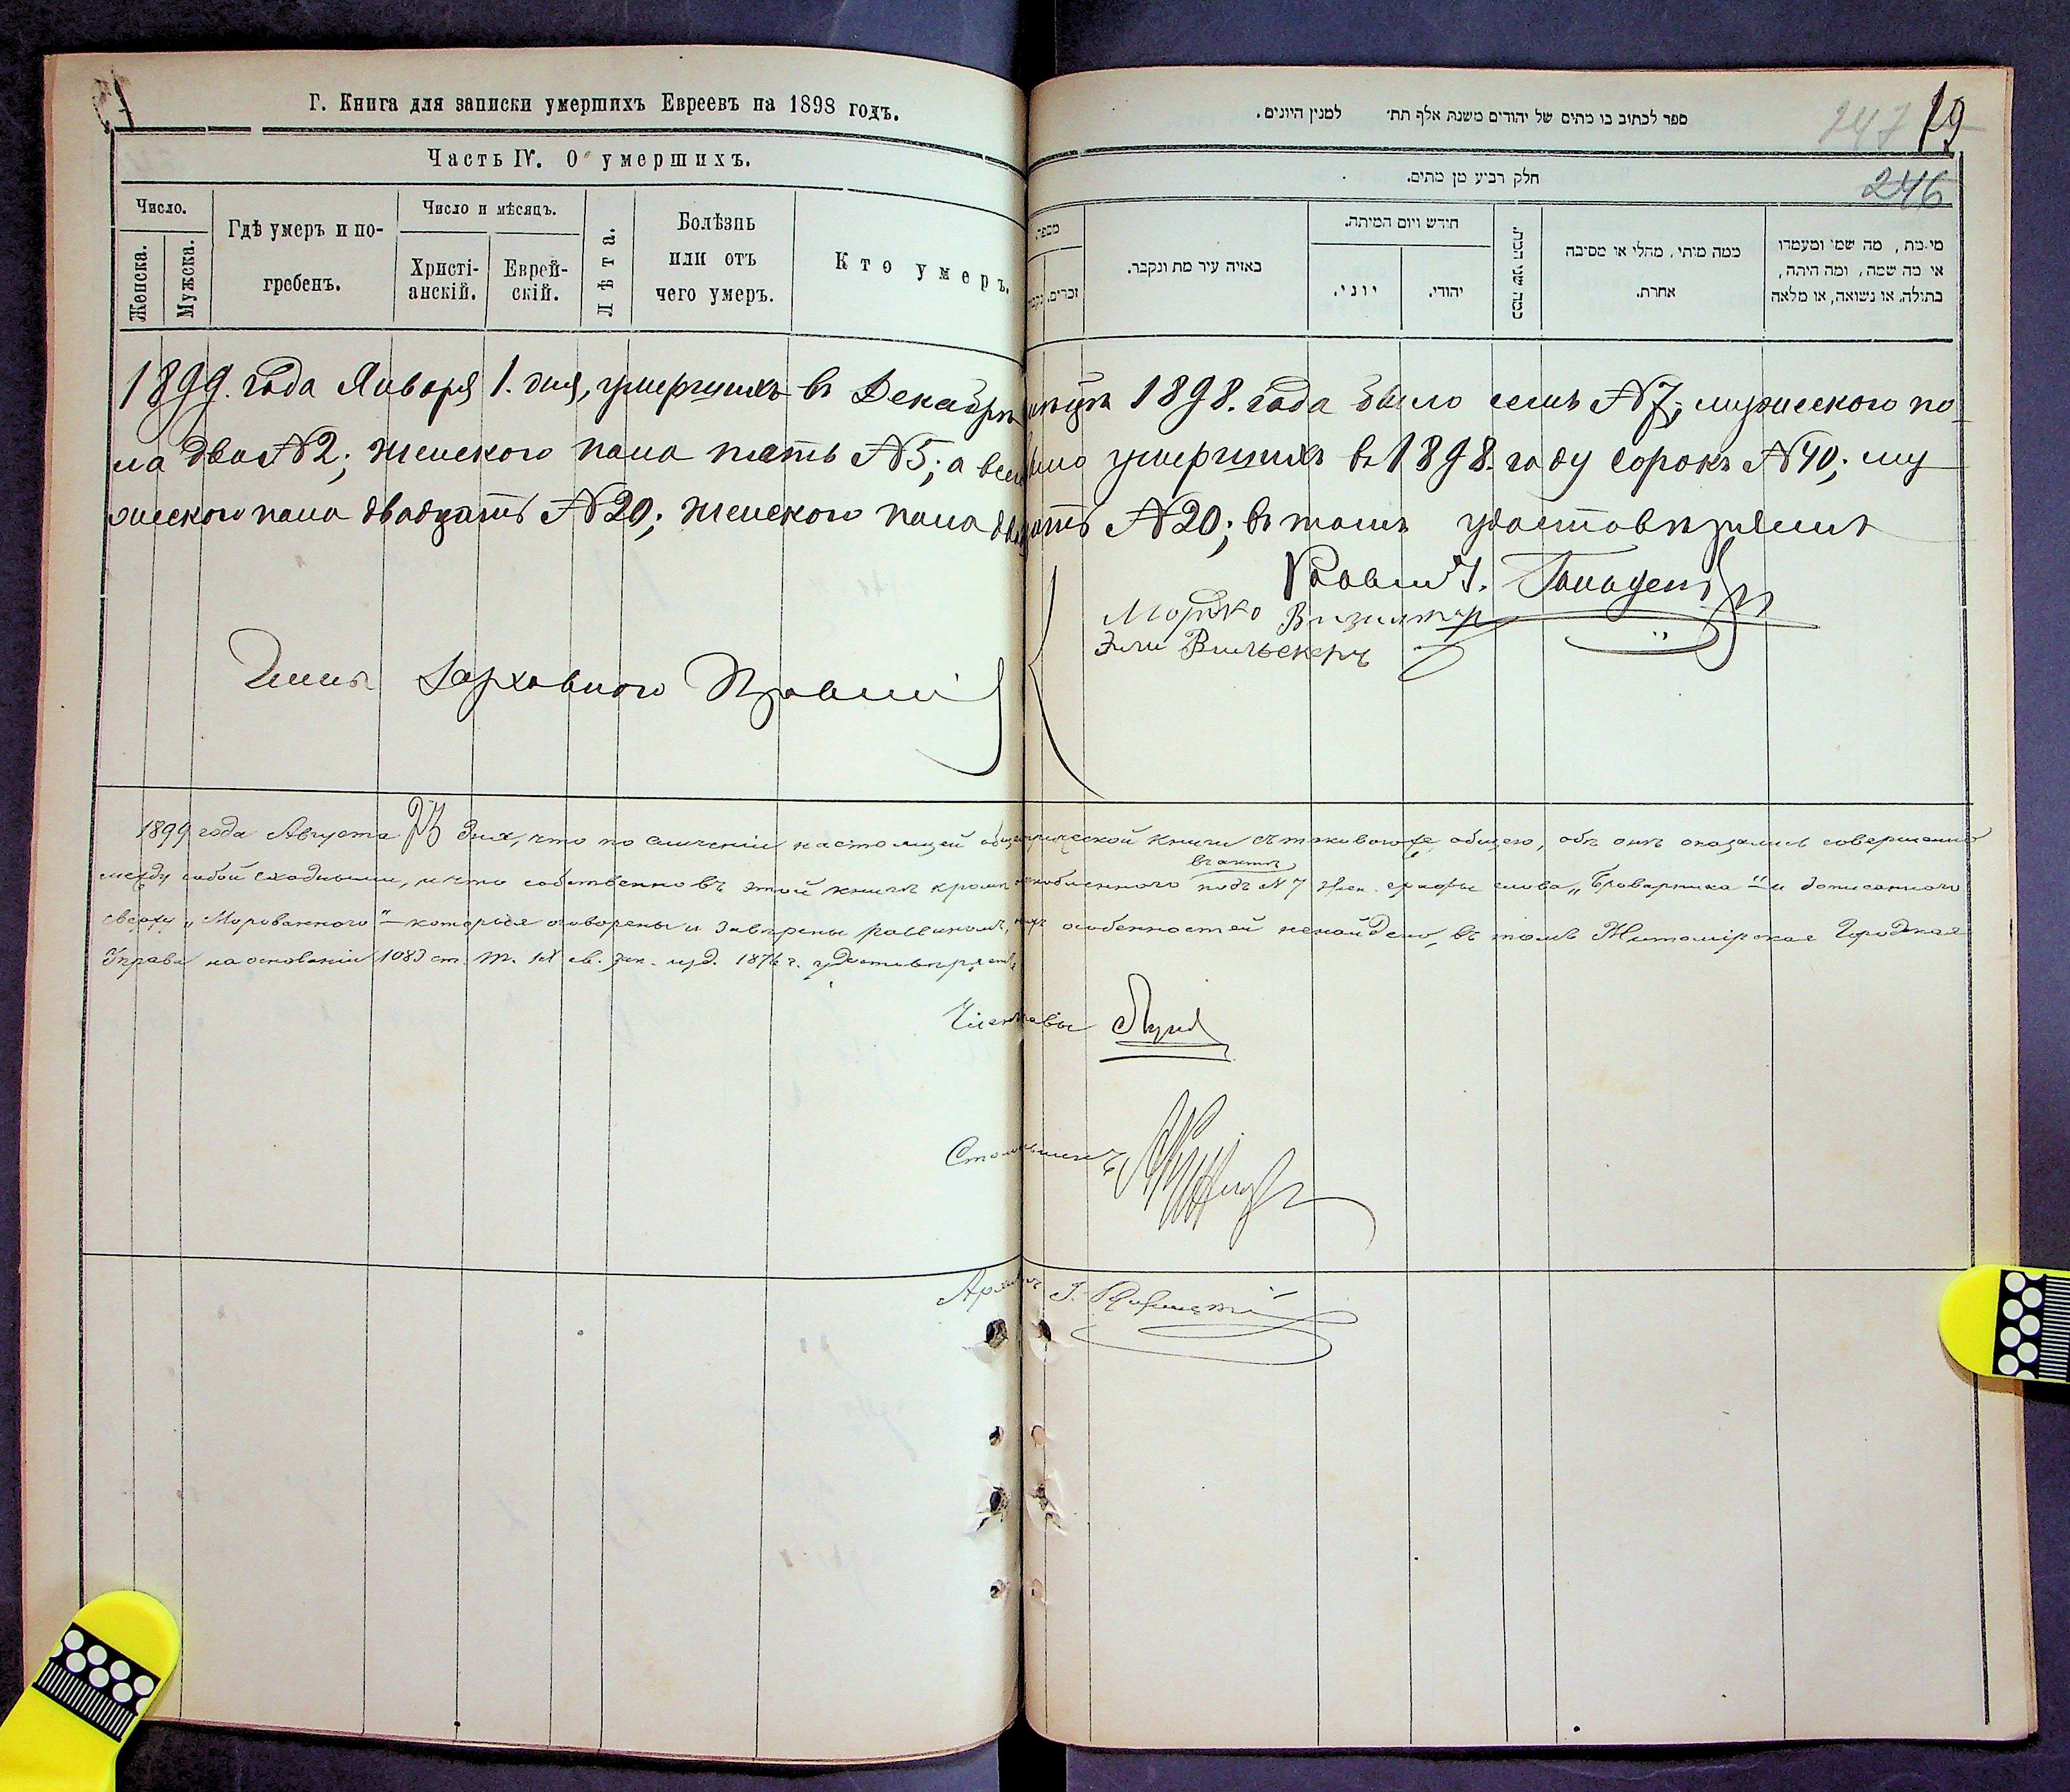 Г. Книга для записки умершихъ Евреевъ на 1898 годъ.
Часть IV. О умершихъ.
Число.
Женска.
Мужска.
Гдѣ умеръ и по-
гребенъ.
Число и мѣсяцъ.
Христі-
анскій.
Еврей-
скій.
Лѣта.
Болѣзнь
или отъ
чего умеръ.
Кто умеръ.
ספר לכתוב בו מתים של יהודים משנת אלף תת׳ למנין היונים.
247 19
246
חלק רביע מן מתים.
מספר
זכרים.
באיזה עיר מת ונקבר.
חודש ויום המיתה.
יוני.
יהודי.
כמה שני המת.
ממה מותי, מחלי או מסיבה
אחרת.
מי מת, מה שמו ומעמדו
או מה שמה, ומה היתה,
בתולה, או נשואה, או מלאה
1899. года Января 1. дня, умершихъ въ Декабрѣ мѣсяцѣ 1898. года было семь №7; мужескаго по-
ла два №2; женскаго пола пять №5; а всего было умершихъ въ 1898. году сорокъ №40; му
жескаго пола двадцать №20; женскаго пола двадцать №20; въ томъ удостовѣряемъ
Раввинъ
Мортко
Эли Вилькеръ
Членъ Духовного Правлені
1899 года Августа 23 дня, что по сличеніи настоящей книги съ таковою же общею, обѣ онѣ оказались совершенно
между собой сходными, и что собственно въ этой книгѣ кромѣ въ актѣ подъ №7 жен. графы слова „Броварника" и дописаннаго
сверху „Морованного" которыя оговорены и завѣрены раввиномъ, особенностей ненайдено, въ томъ Житомірская Городская
Управа на основаніи 1083 ст. т. IX св. зак. изд. 1876 г. удостовѣряетъ
Членъ Управы
Столоначальникъ